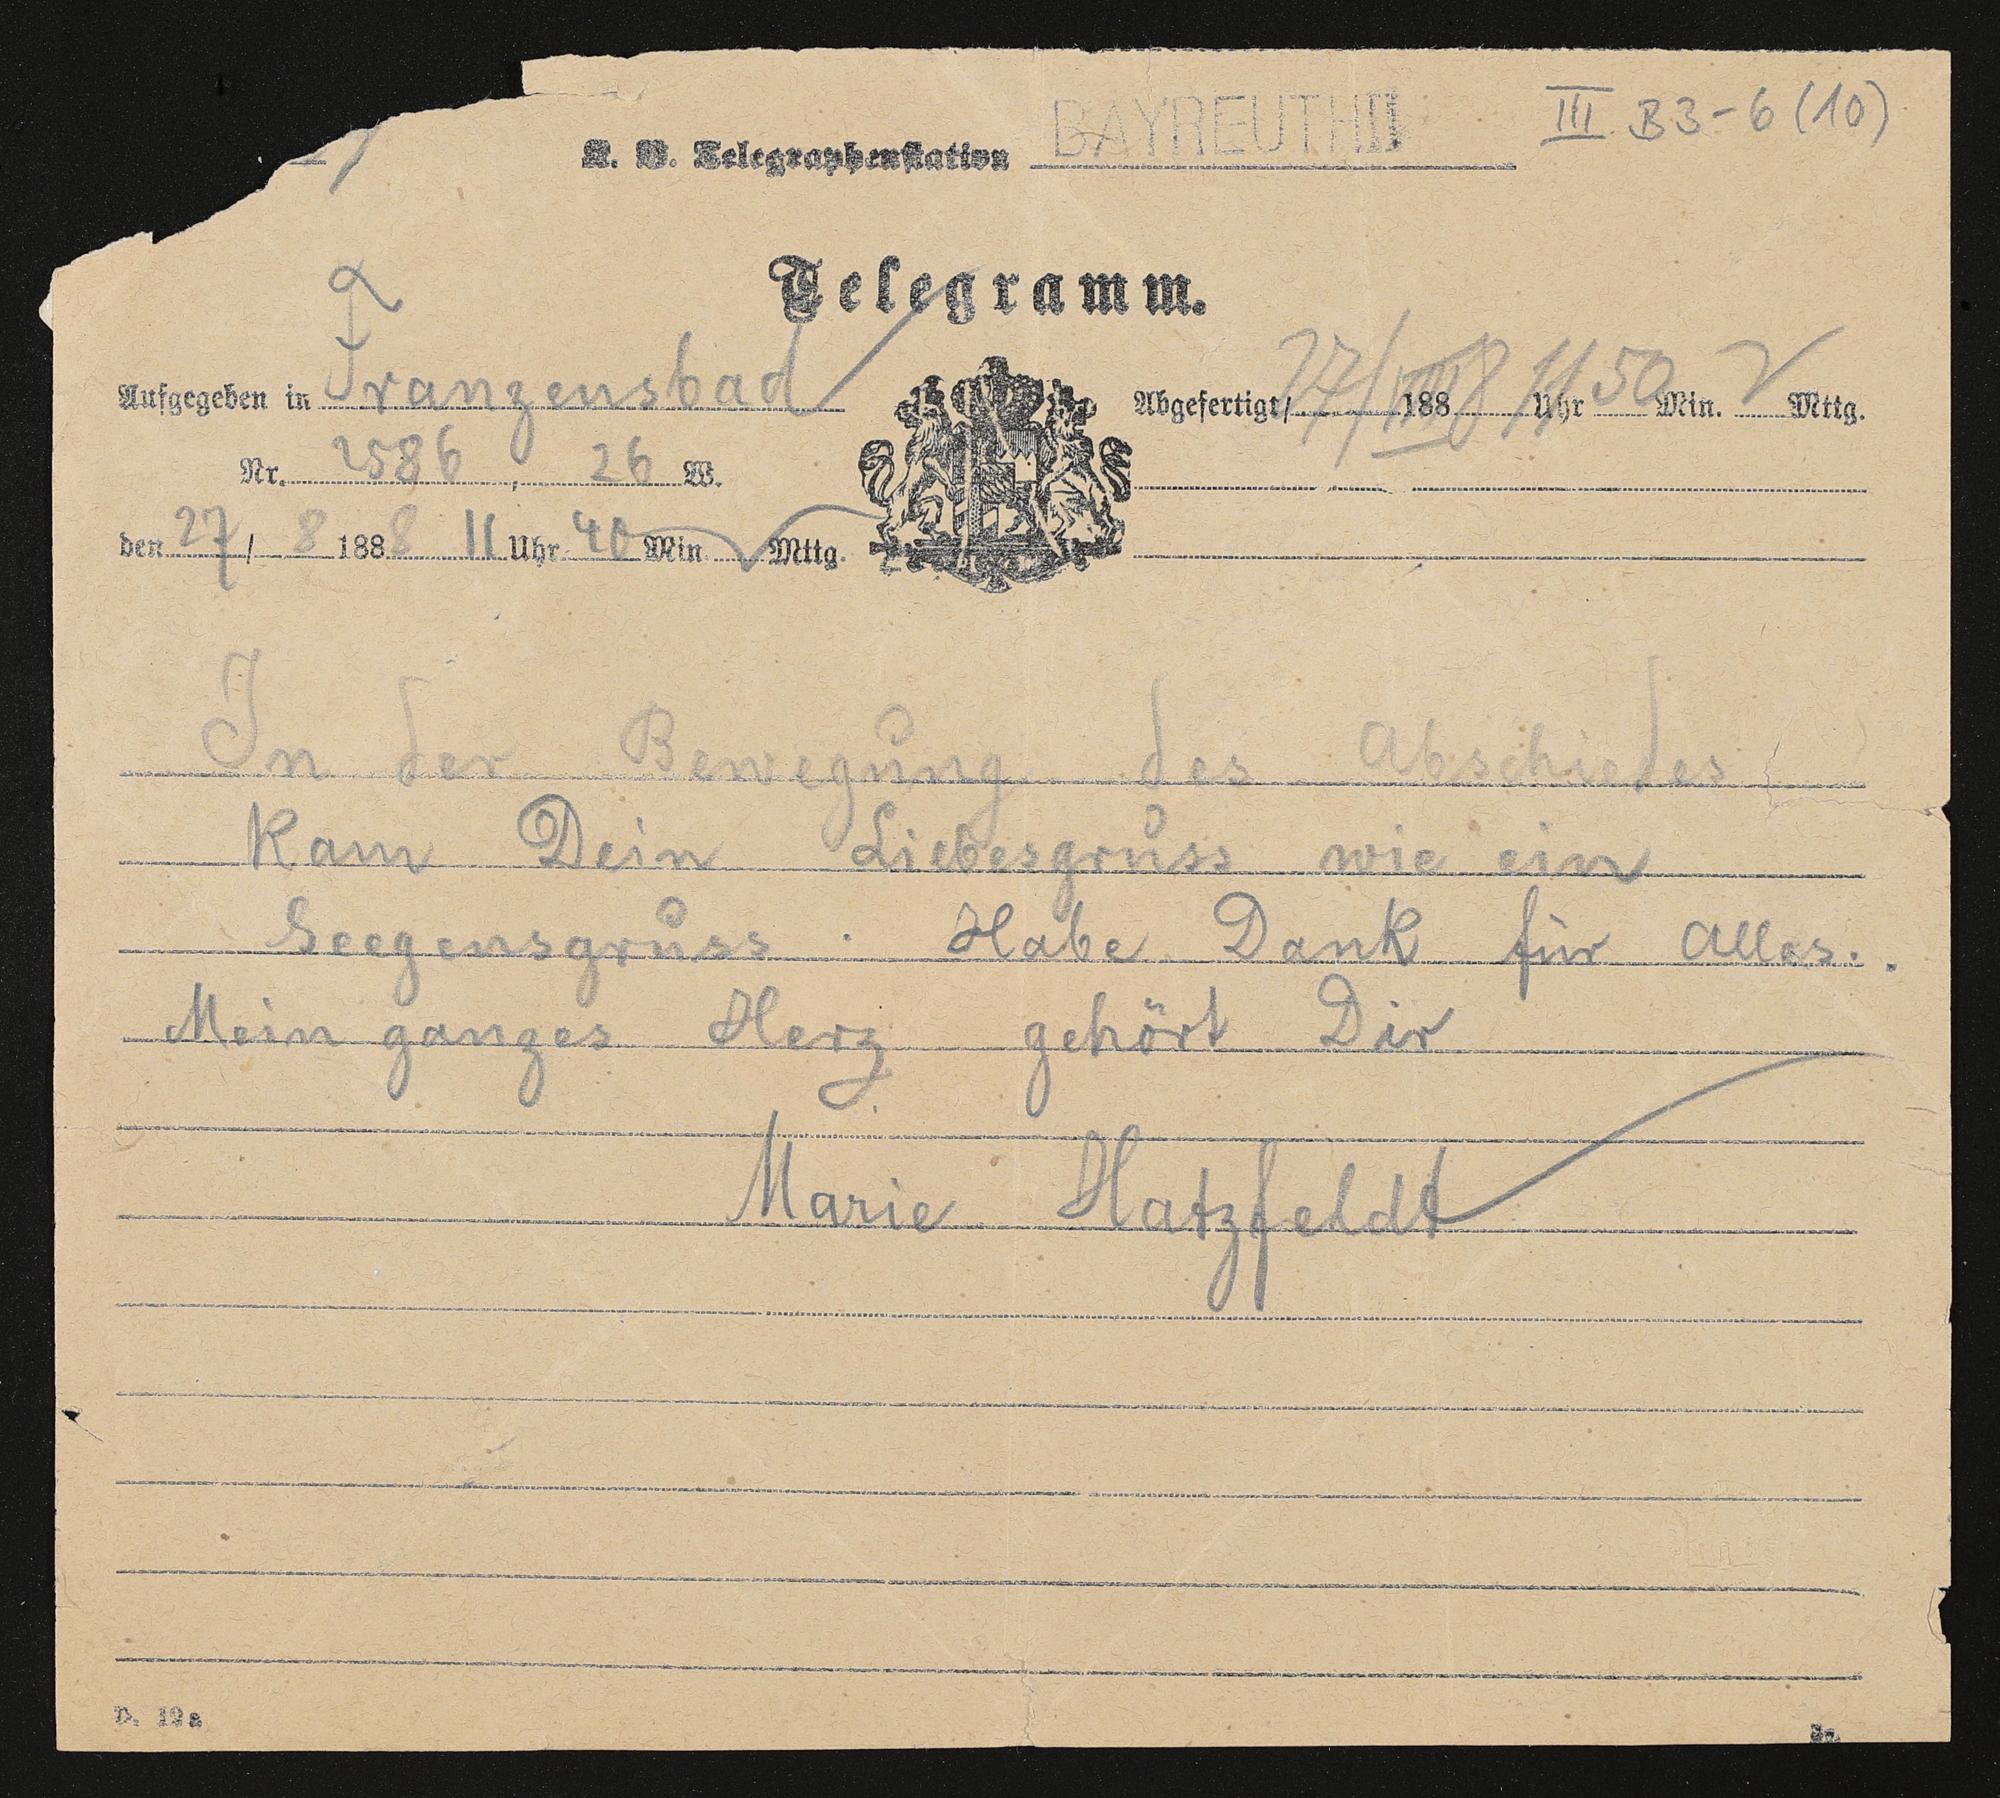 III B3-6 (10)
K. B. Telegraphenstation BAYREUTH II
Telegramm.
Aufgegeben in Franzensbad
Abgefertigt 27/VIII 1888 11 Uhr 50 Min. V Mttg.
Nr. 2586, 26 W.
den 27/8 1888 11 Uhr 40 Min V Mttg.
In der Bewegung des Abschiedes
kam Dein Liebesgruss wie ein
Seegensgruss. Habe Dank für Alles..
Mein ganzes Herz gehört Dir
Marie Hatzfeldt
D. 19a